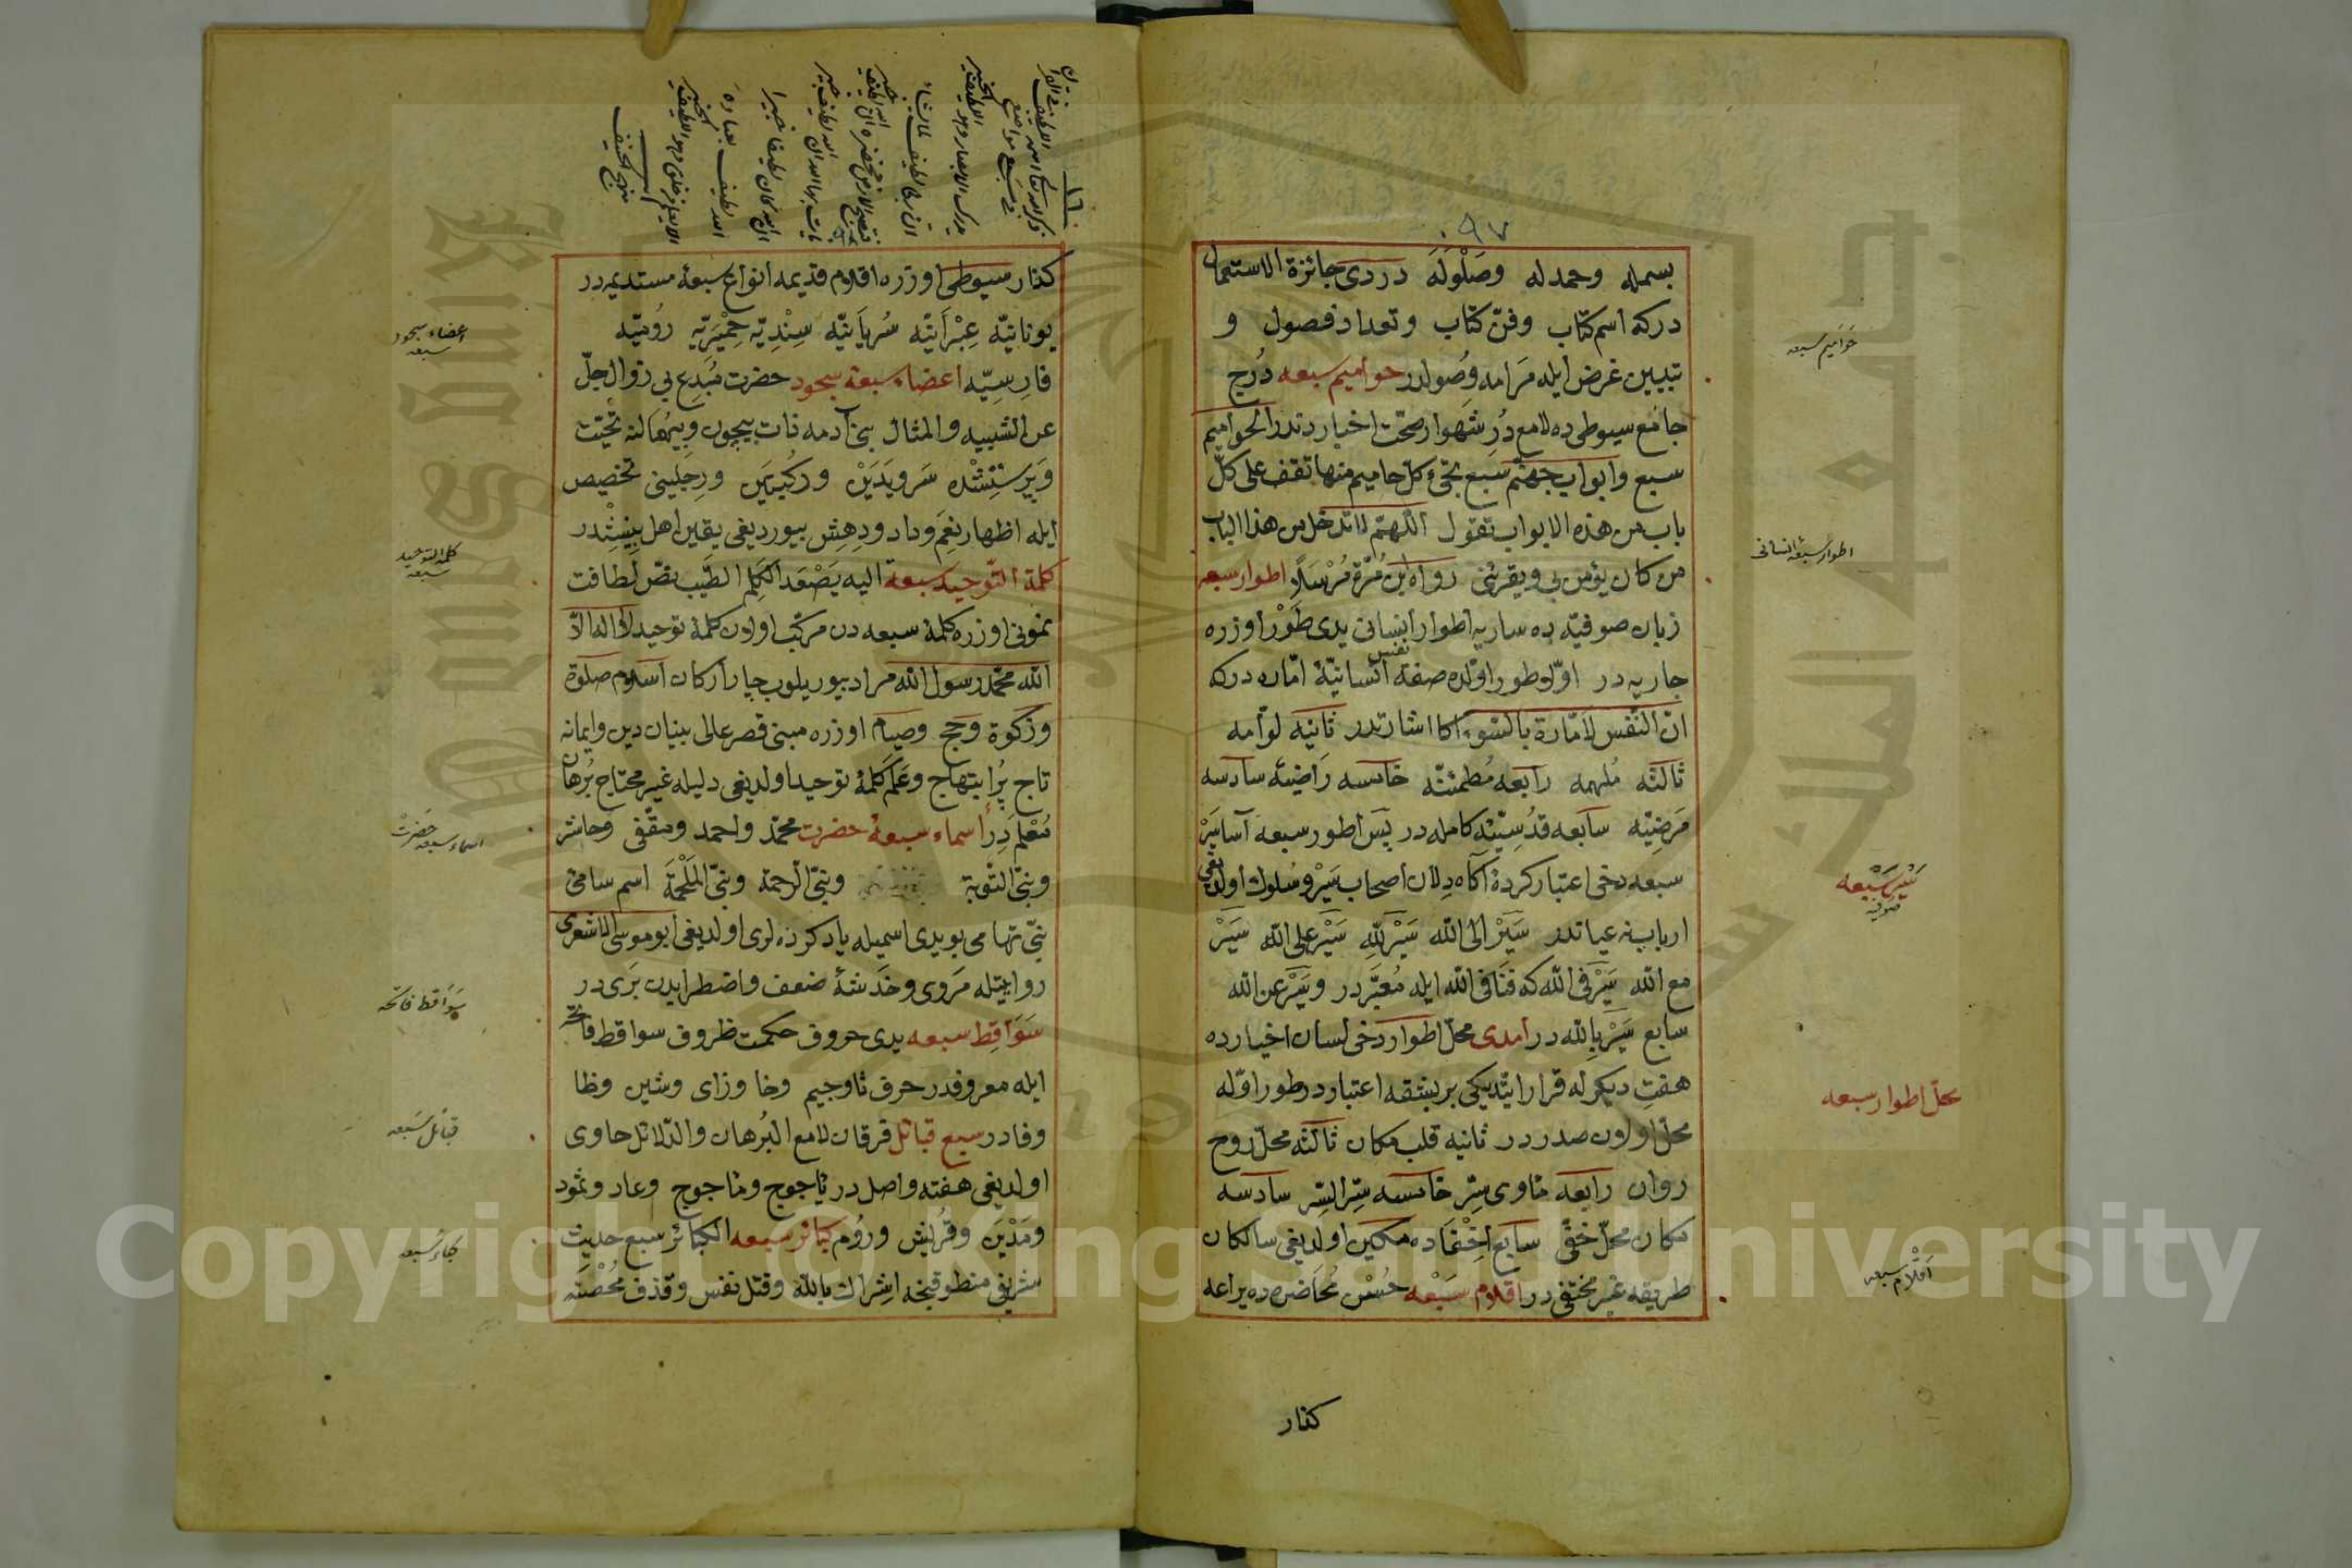 ٩٧
بسمله وحمدله وصلوله دردى جائزة الاستعمال
دركه اسم كتاب وفن كتاب وتعداد فصول و
تبيين غرض ايله مرامه وصولدر حواميم سبعه درج
جامع سيوطى ده لامع در شهوار صحت اخبار دندر الحواميم
سبع وابواب جهنم سبع تجئ كل حاميم منها تقف على كل
باب من هذه الابواب تقول اللهم لا تدخل من هذا الباب
من كان يؤمن بى ويقرئنى رواه ابن مرة مرسلا اطوار سبعه
زبان صوفيه ده ساريه اطوار انسانى يدى طور اوزره
جاريه در اولا طور اولده صفة نفس انسانيۀ اماره دركه
ان النفس لامارة بالسوء اكا اشارتدر ثانيه لوامه
ثالثه ملهمه رابعه مطمئنه خامسه راضيه سادسه
مرضيه سابعه قدسيۀ كامله در پس اطور سبعه آسا سير
سبعه دخى اعتبار كردۀ آكاه دلان اصحاب سير وسلوك اولديغى
اربابنه عياندر سير الى الله سير لله سير على الله سير
مع الله سير فى الله كه فنا فى الله ايله معبر در وسير عن الله
سابع سير بالله در امدى محل اطوار دخى لسان اخيارده
هفت ديكرله قرار ايتديكى بر بشقه اعتباردر طور اوله
محل اولان صدردر ثانيه قلب مكان ثالثه محل روح
روان رابعه مأوى سر خامسه سر السر سادسه
مكان محل خفى سابع اخفاده مكين اولديغى سالكان
طريقه غير مختفى در اقلام سبعه حسن محاضره ده يراعه
كفتار
حواميم سبعه
اطوار سبعۀ انسانى
سير سبعه
صوفيه
محل اطوار سبعه
اقلام سبعه
١٦
كفتار سيوطى اوزره اقلام قديمه انواع سبعه مستديمه در
يونانيه عبرانيه سريانيه سنديه حميريه روميه
فارسيه اعضاء سبعۀ سجود حضرت مبدع بى زوال جل
عن الشبيه والمثال بنى آدمه ذات بيچون وبيهمالنه تحيت
وپرستشده سر ويدين وركبتين ورجلينى تخصيص
ايله اظهار نعم وداد ودهش بيورديغى يقين اهل بينشدر
كلمة التوحيد سبعة اليه يصعد الكلم الطيب نص لطافت
نمونى اوزره كلمۀ سبعه دن مركب اولان كلمۀ توحيد لا اله الا
الله محمد رسول الله مراد بيوريلوب چار اركان اسلام صلوة
وزكوة وحج وصيام اوزره مبنى قصر عالى بنيان دين وايمانه
تاج پر ابتهاج وعلم كلمۀ توحيد اولديغى دليله غير محتاج برهان
معلمدر اسماء سبعۀ حضرت محمد واحمد ومقفى وحاشر
ونبى التوبة ونبى الرحمة ونبى الملحمة اسم سامئ
نبى تهامى بو يدى اسميله ياد كرده لرى اولديغى ابو موسى الاشعرى
روايتيله مروى وخدشۀ ضعف واضطرابدن برى در
سواقط سبعه يدى حروف حكمت ظروف سواقط فاتحه
ايله معروفدر حرف ثا وجيم وخا وزاى وشين وظا
وفا در سبع قبائل فرقان لامع البرهان والدلائل حاوى
اولديغى هفته واصلدر يأجوج ومأجوج وعاد وثمود
ومدين وقريش وروم كبائر سبعه الكبائر سبع حديث
شريفى منطوقنجه اشراك بالله وقتل نفس وقذف محصنه
اعضاء سجود
سبعه
كلمة التوحيد
سبعه
اسماء سبعه حضرت
سواقط فاتحه
قبائل سبعه
كبائر سبعه
Copyright © King Saud University